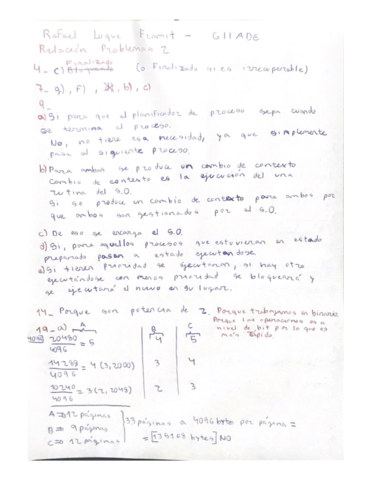 Rafael Luque Framit - GIIADE
Relación Problemas 2
Finalizado
4- c) Bloqueado (o Finalizado si es irrecuperable)
7- g), f), b), c)
9-
a) Si para que el planificador de proceso sepa cuando
se termina el proceso.
No, no tiene esa necesidad, ya que simplemente
pasa al siguiente proceso.
b) Para ambos se produce un cambio de contexto
Cambio de contexto es la ejecución del una
rutina del S.O.
Si se produce un cambio de contexto para ambos por
que ambos son gestionados por el S.O.
c) De eso se encarga el S.O.
d) Si, para aquellos procesos que estuvieran en estado
preparado pasen a estado ejecutandose.
e) Si tienen prioridad se ejecutaran, si hay otro
ejecutándose con menor prioridad se bloqueará y
se ejecutará el nuevo en su lugar.
14- Porque son potencia de 2. Porque trabajamos en binario
Porque las operaciones es a
nivel de bit por lo que es
más rápido.
19- a) A B C
20480/4096 = 5 4 5
14288/4096 = 4 (3,2000) 3 4
10240/4096 = 3 (2,2048) 2 3
A = 12 páginas
B = 9 páginas
C = 12 páginas
33 páginas a 4096 byte por página =
= [135168 bytes] NO